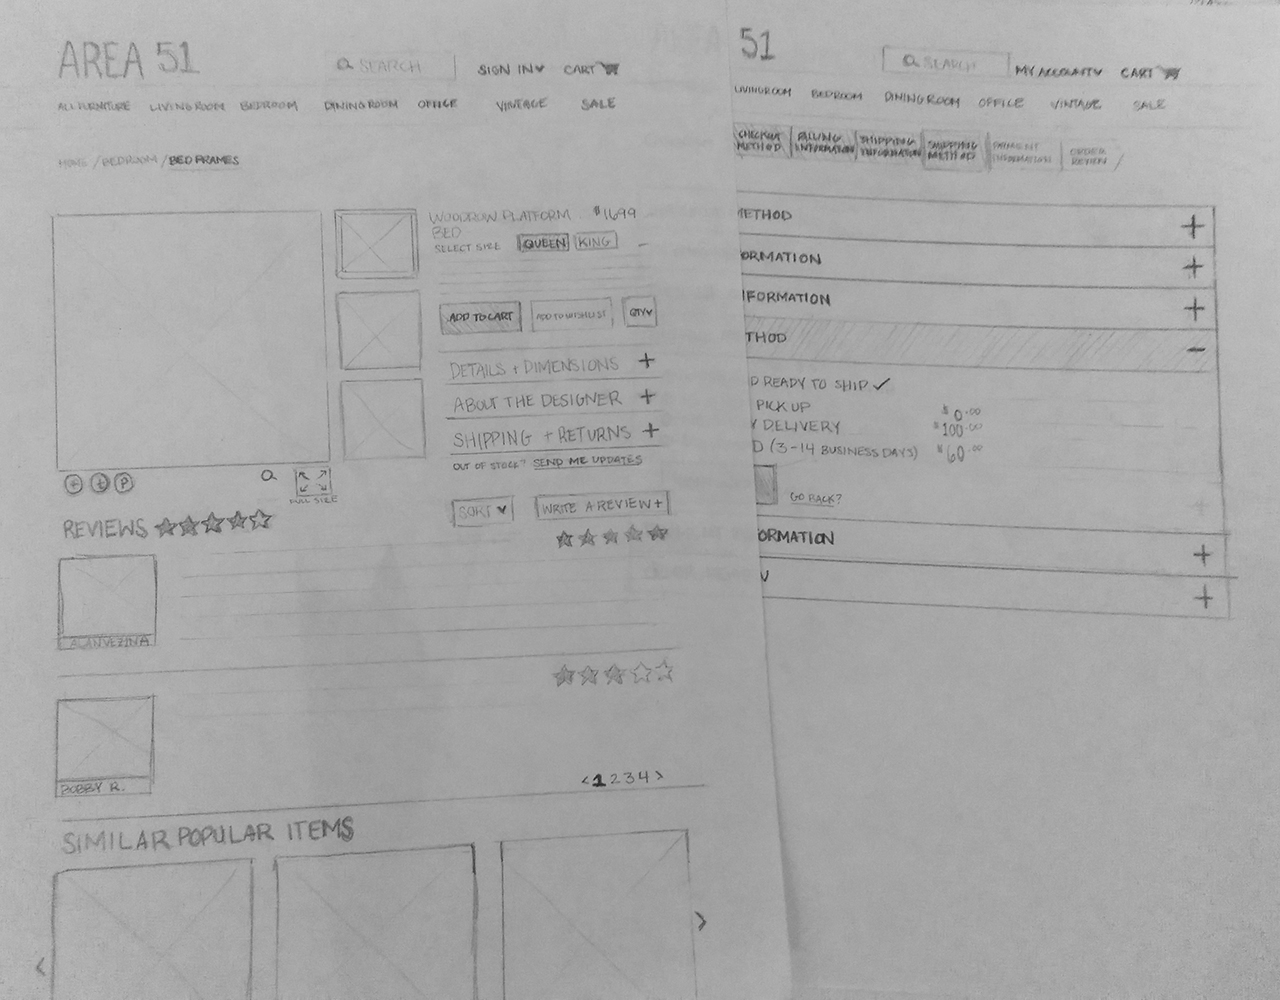 AREA 51
SEARCH
SIGN IN
CART
ALL FURNITURE LIVING ROOM BEDROOM DINING ROOM OFFICE VINTAGE SALE
HOME / BEDROOM / BED FRAMES
WOODROW PLATFORM BED $1699
SELECT SIZE QUEEN KING
ADD TO CART ADD TO WISHLIST QTY
DETAILS + DIMENSIONS +
ABOUT THE DESIGNER +
SHIPPING + RETURNS +
OUT OF STOCK? SEND ME UPDATES
FULL SIZE
REVIEWS
SORT
WRITE A REVIEW +
ALAN VEZINA
BOBBY R.
< 1 2 3 4 >
SIMILAR POPULAR ITEMS
<
>
51
SEARCH
MY ACCOUNT
CART
LIVING ROOM BEDROOM DINING ROOM OFFICE VINTAGE SALE
METHOD
INFORMATION
SHIPPING INFORMATION
SHIPPING METHOD
PAYMENT INFORMATION
ORDER REVIEW
METHOD +
ORMATION +
FORMATION +
THOD −
D READY TO SHIP ✓
PICK UP $0.00
Y DELIVERY $100.00
D (3-14 BUSINESS DAYS) $60.00
GO BACK?
ORMATION +
W +